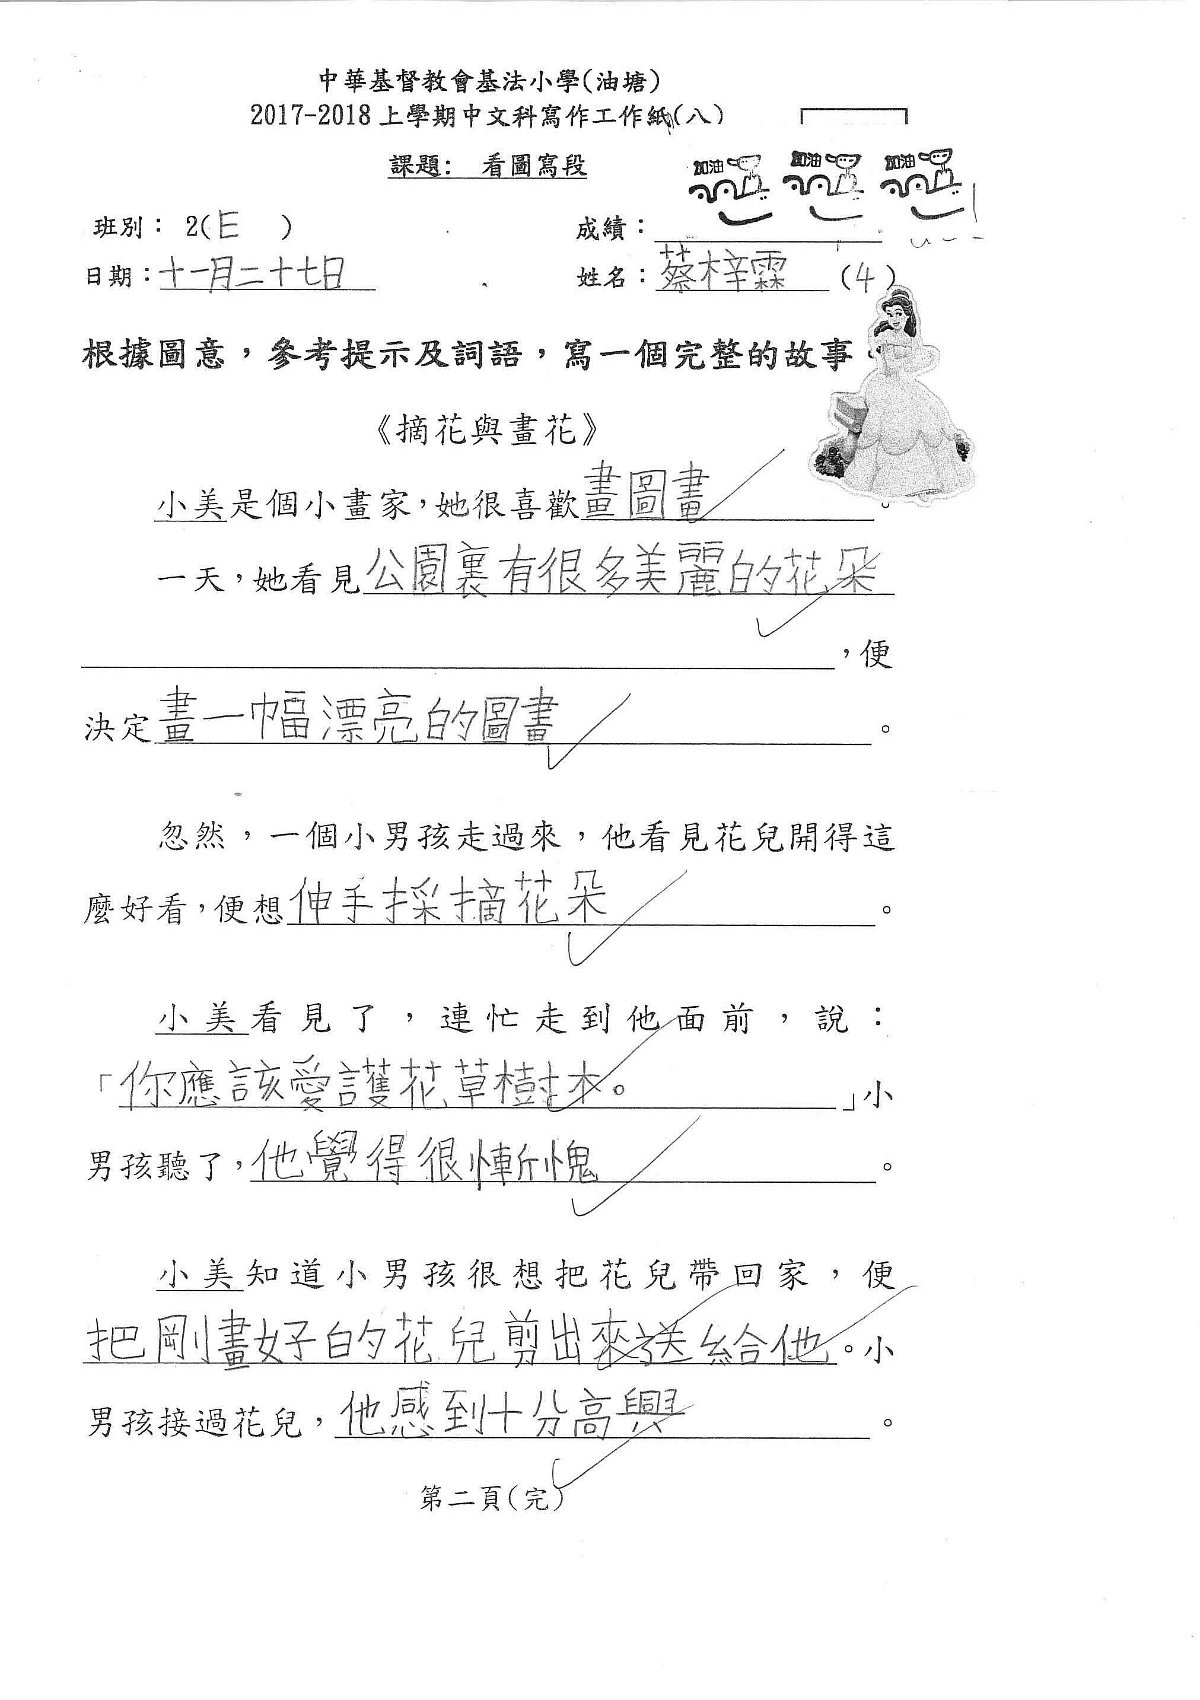 中華基督教會基法小學(油塘)
2017-2018上學期中文科寫作工作紙(八)
課題： 看圖寫段
加油 加油 加油
班別： 2(E ) 成績：
日期：十一月二十七日 姓名：蔡梓霖 (4)
根據圖意，參考提示及詞語，寫一個完整的故事。
《摘花與畫花》
小美是個小畫家，她很喜歡畫圖畫。
一天，她看見公園裏有很多美麗的花朵
，便
決定畫一幅漂亮的圖畫。
忽然，一個小男孩走過來，他看見花兒開得這
麼好看，便想伸手採摘花朵。
小美看見了，連忙走到他面前，說：
「你應該愛護花草樹木。」小
男孩聽了，他覺得很慚愧。
小美知道小男孩很想把花兒帶回家，便
把剛畫好的花兒剪出來送給他。小
男孩接過花兒，他感到十分高興。
第二頁(完)